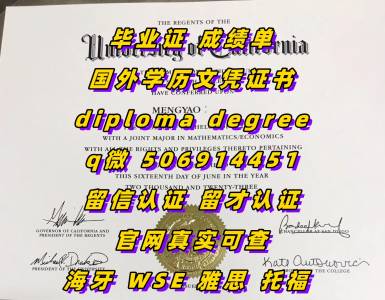 THE REGENTS OF THE
University of California
毕业证 成绩单
国外学历文凭证书
HAVE CONFERRED UPON
MENGYAO
diploma degree
WITH A JOINT MAJOR IN MATHEMATICS/ECONOMICS
WITH ALL THE RIGHTS AND PRIVILEGES THERETO PERTAINING
q微 506914451
THIS SIXTEENTH DAY OF JUNE IN THE YEAR
TWO THOUSAND AND TWENTY-THREE
留信认证 留才认证
GOVERNOR OF CALIFORNIA AND
PRESIDENT OF THE REGENTS
官网真实可查
PRESIDENT OF THE
海牙 WSE 雅思 托福